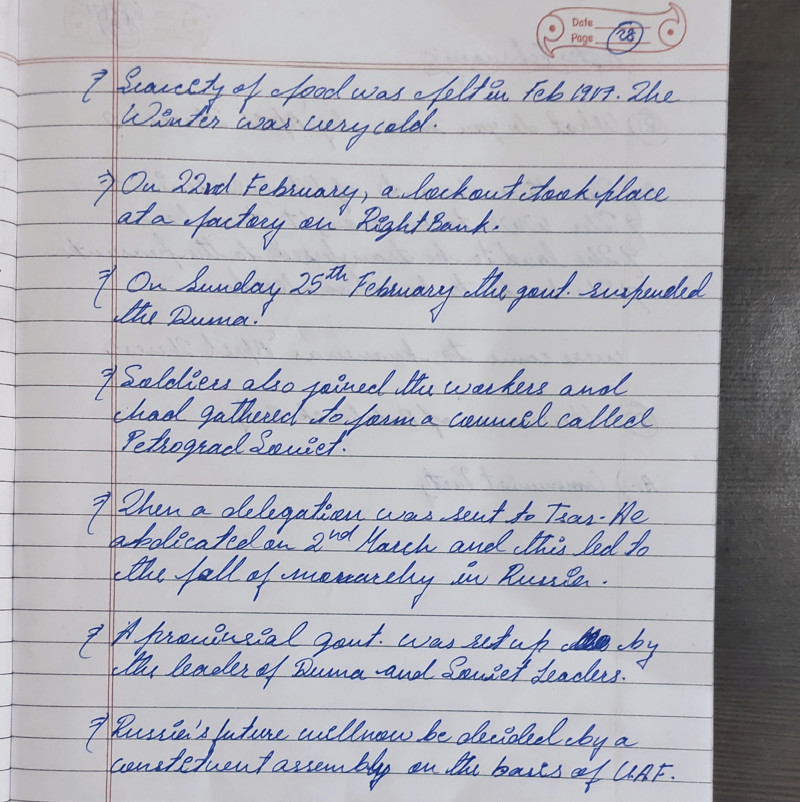 Date
Page 28
⇒ Scarcity of food was felt in Feb 1917. The
Winter was very cold.
⇒ On 22nd February, a lockout took place
at a factory on Right Bank.
⇒ On Sunday 25th February the govt. suspended
the Duma.
⇒ Soldiers also joined the workers and
had gathered to form a council called
Petrograd Soviet.
⇒ Then a delegation was sent to Tsar. He
abdicated on 2nd March and this led to
the fall of monarchy in Russia.
⇒ A provinsial govt. was set up by
the leader of Duma and Soviet Leaders.
⇒ Russia's future will now be decided by a
constituent assembly on the basis of U.A.F.